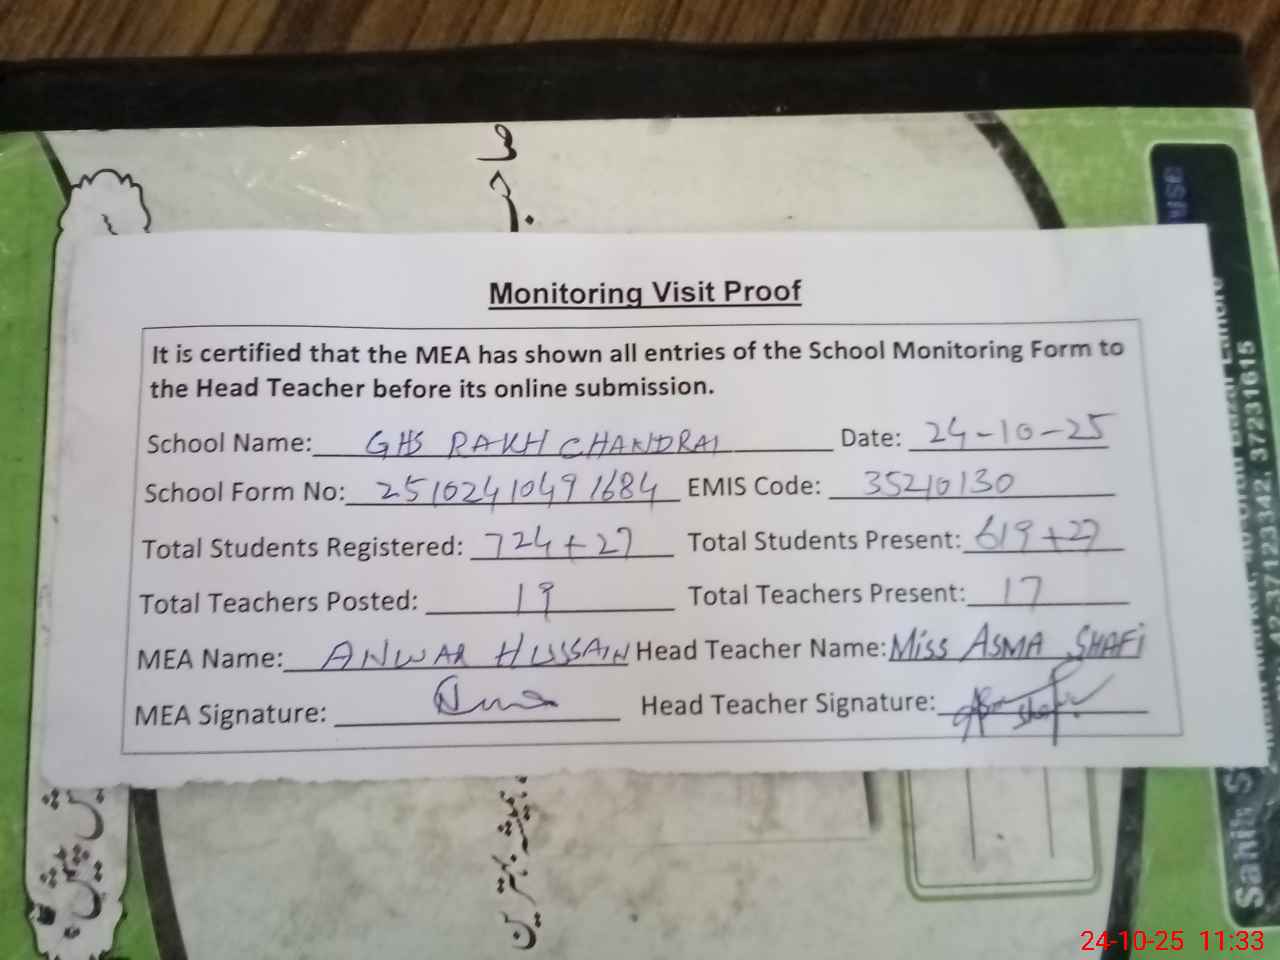 Monitoring Visit Proof
It is certified that the MEA has shown all entries of the School Monitoring Form to
the Head Teacher before its online submission.
School Name: GHS RAKH CHANDRAI Date: 24-10-25
School Form No: 2510241049 1684 EMIS Code: 35210130
Total Students Registered: 724+27 Total Students Present: 619+27
Total Teachers Posted: 19 Total Teachers Present: 17
MEA Name: ANWAR HUSSAIN Head Teacher Name: MISS ASMA SHAFI
MEA Signature: Head Teacher Signature:
37123342, 37231615
24-10-25 11:33